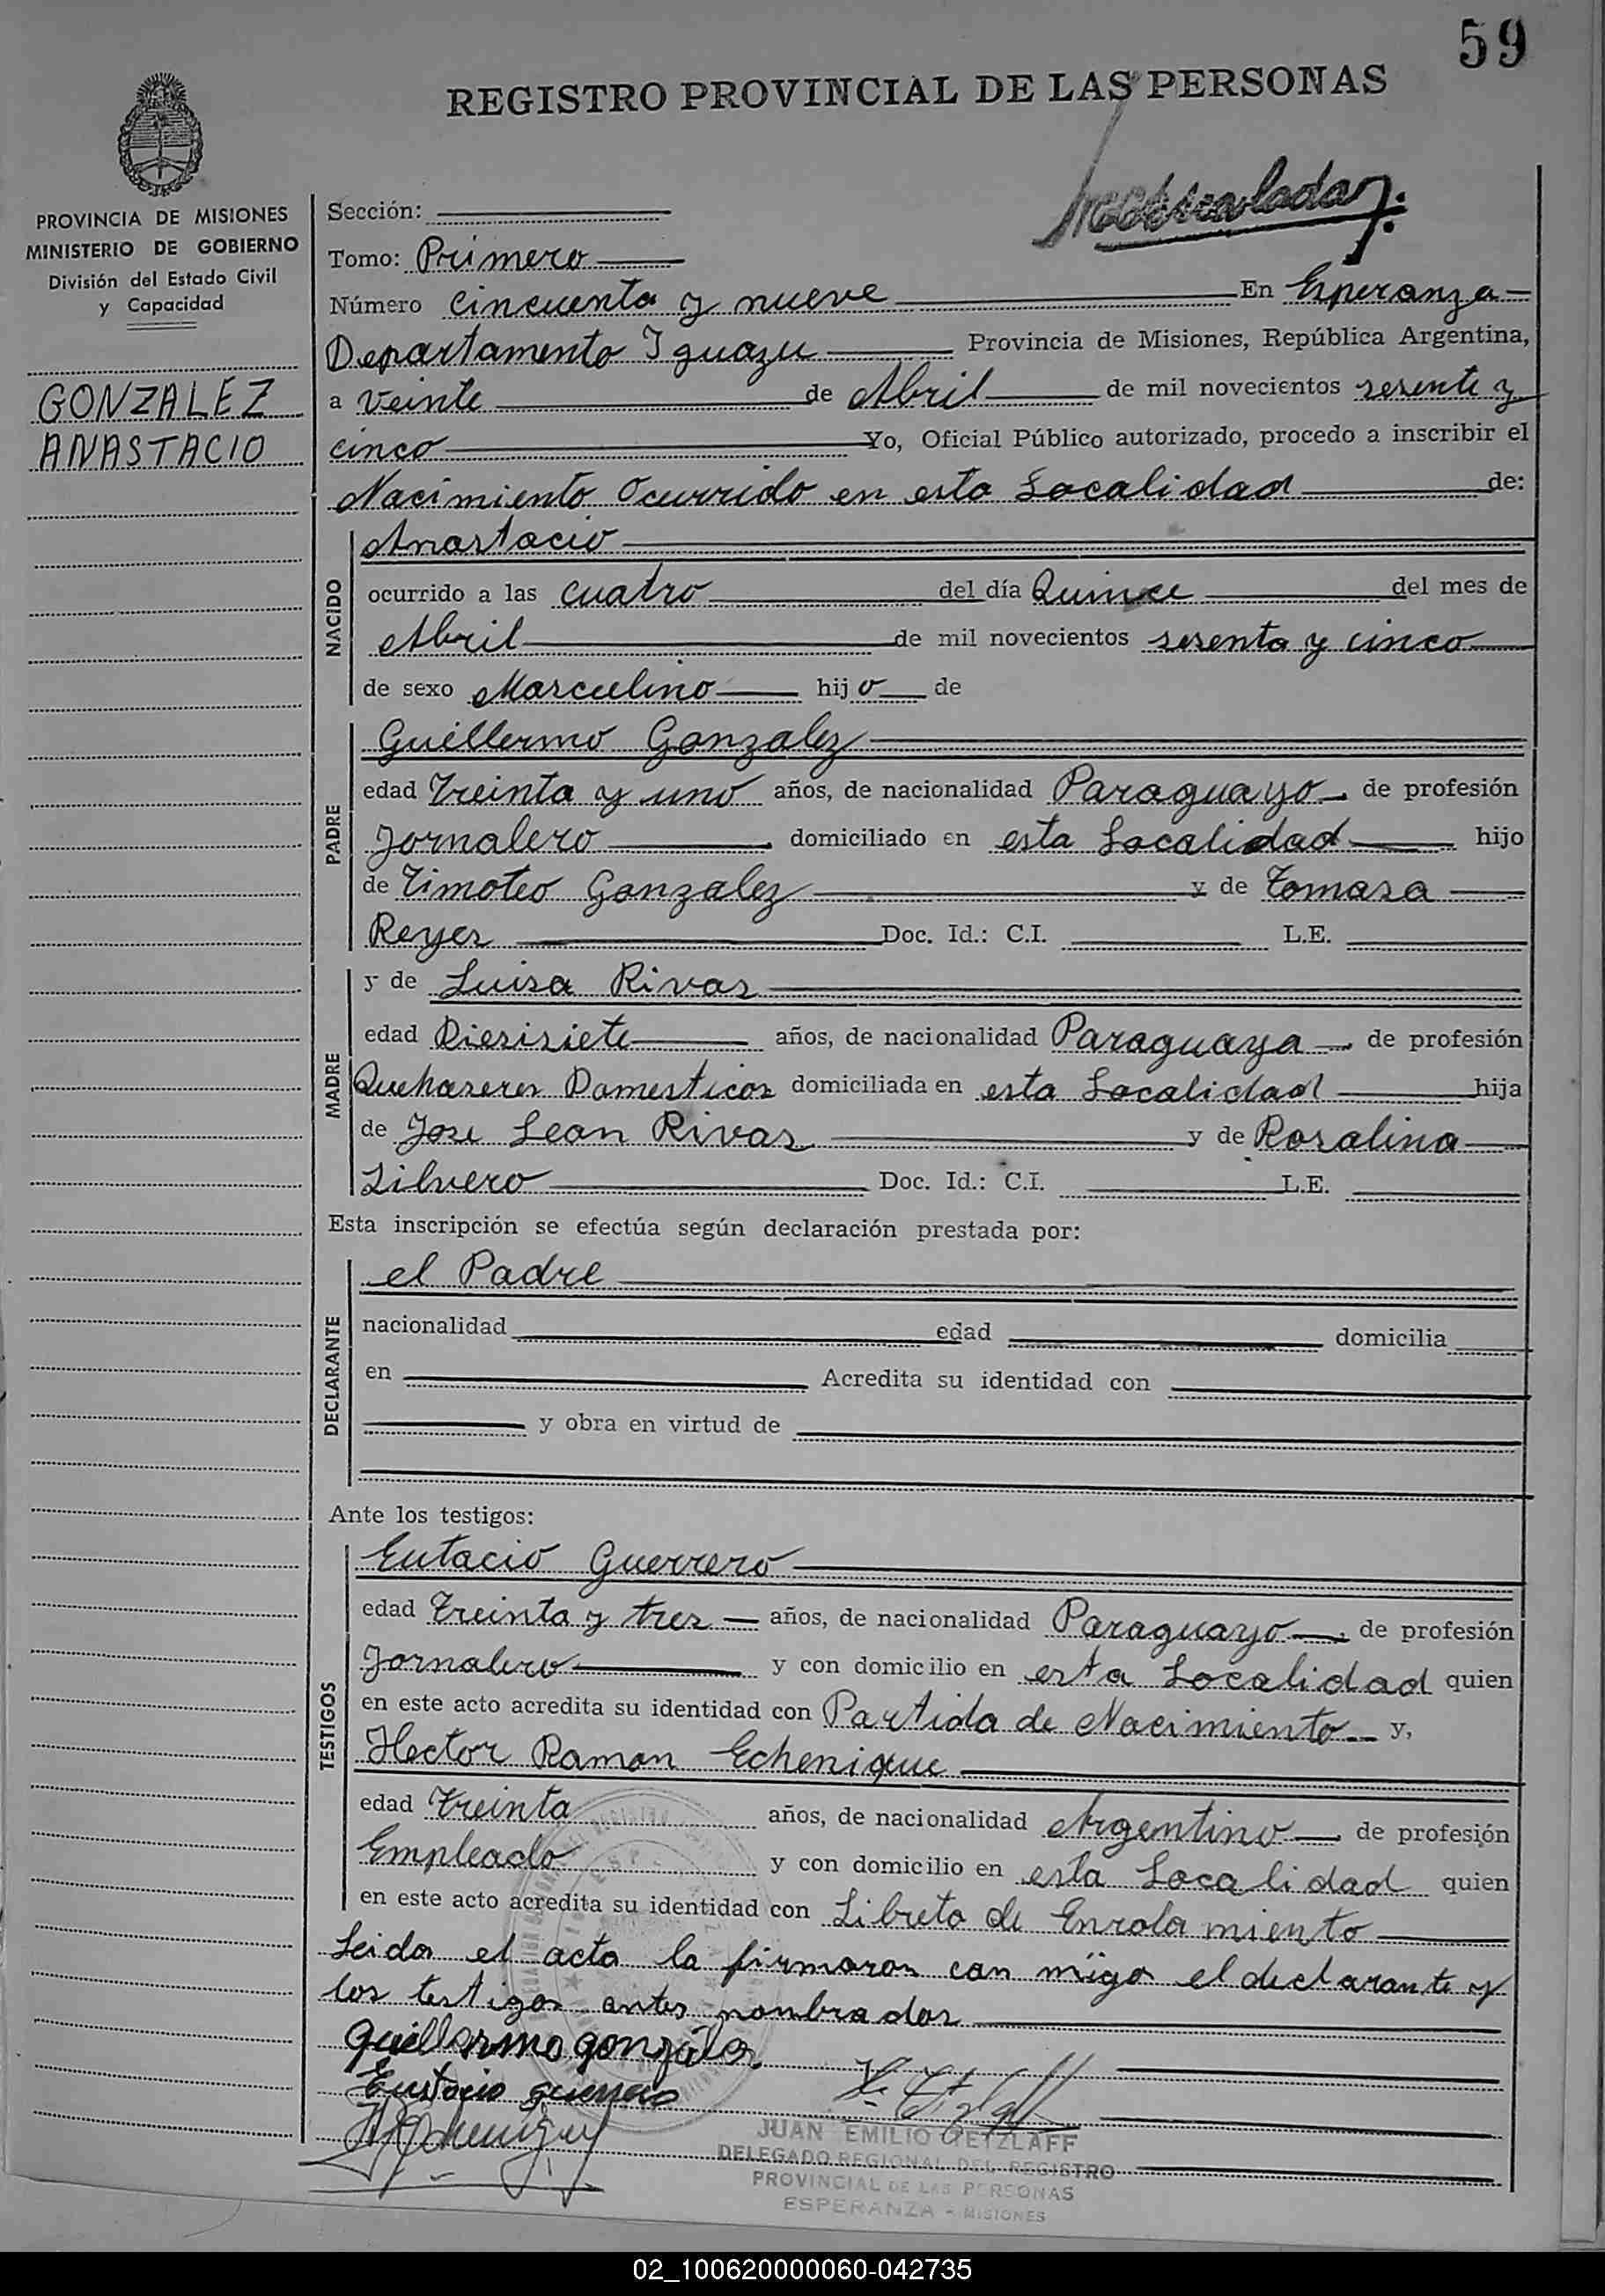 59
REGISTRO PROVINCIAL DE LAS PERSONAS
PROVINCIA DE MISIONES
MINISTERIO DE GOBIERNO
División del Estado Civil
y Capacidad
GONZALEZ
ANASTACIO
Sección:
Tomo: Primero
Número cincuenta y nueve En Esperanza
Departamento Iguazu Provincia de Misiones, República Argentina,
a veinte de Abril de mil novecientos sesenta y
cinco Yo, Oficial Público autorizado, procedo a inscribir el
Nacimiento Ocurrido en esta Localidad de:
NACIDO
Anastacio
ocurrido a las cuatro del día Quince del mes de
Abril de mil novecientos sesenta y cinco
de sexo Masculino hijo de
PADRE
Guillermo Gonzalez
edad Treinta y uno años, de nacionalidad Paraguayo de profesión
Jornalero domiciliado en esta Localidad hijo
de Timoteo Gonzalez y de Tomasa
Reyes Doc. Id.: C.I. L.E.
MADRE
y de Luisa Rivas
edad Diesisiete años, de nacionalidad Paraguaya de profesión
Quehaseres Domesticos domiciliada en esta Localidad hija
de Jose Leon Rivas y de Rosalina
Silvero Doc. Id.: C.I. L.E.
Esta inscripción se efectúa según declaración prestada por:
DECLARANTE
el Padre
nacionalidad edad domicilia
en Acredita su identidad con
y obra en virtud de
Ante los testigos:
TESTIGOS
Eutacio Guerrero
edad Treinta y tres años, de nacionalidad Paraguayo de profesión
Jornalero y con domicilio en esta Localidad quien
en este acto acredita su identidad con Partida de Nacimiento y,
Hector Ramon Echenique
edad Treinta años, de nacionalidad Argentino de profesión
Empleado y con domicilio en esta Localidad quien
en este acto acredita su identidad con Libreta de Enrolamiento
Leida el acta la firmaron con migo el declarante y
los testigos antes nombrados
Guillermo gonzález
Eustacio guerrero
JUAN EMILIO GETZLAFF
DELEGADO REGIONAL DEL REGISTRO
PROVINCIAL DE LAS PERSONAS
ESPERANZA - MISIONES
02_100620000060-042735